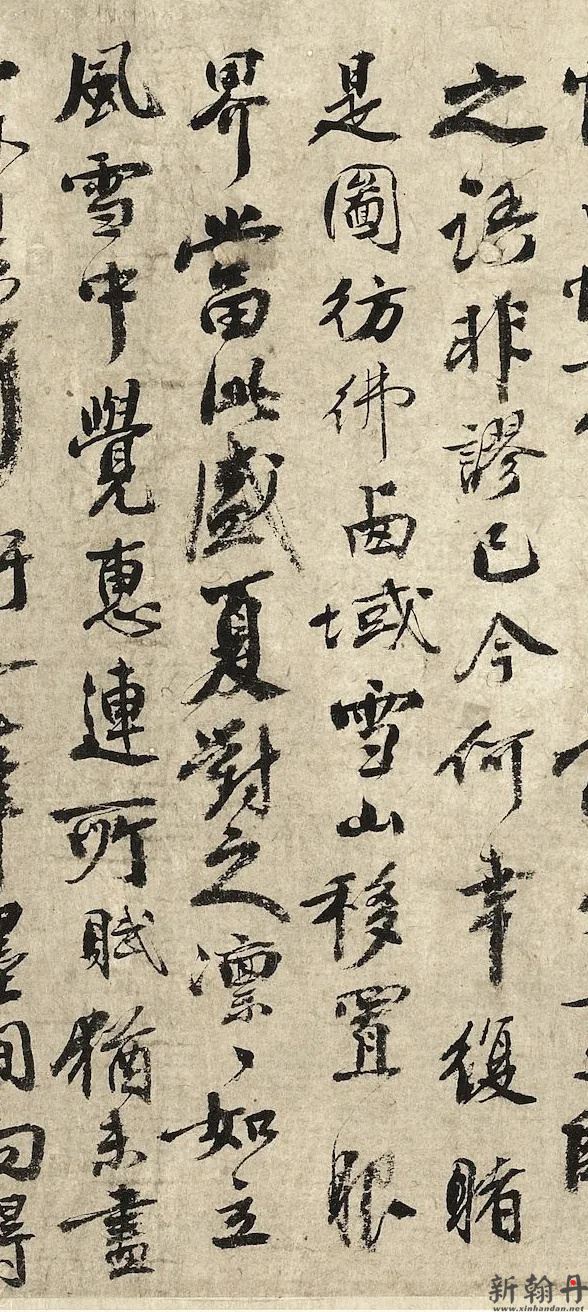 之語非謬已今何幸復睹
是圖彷彿西域雪山移置眼
界當此盛夏對之凛〻如立
風雪中覺惠連所賦猶未盡
墨間向得
新翰丹
www.xinhandan.net